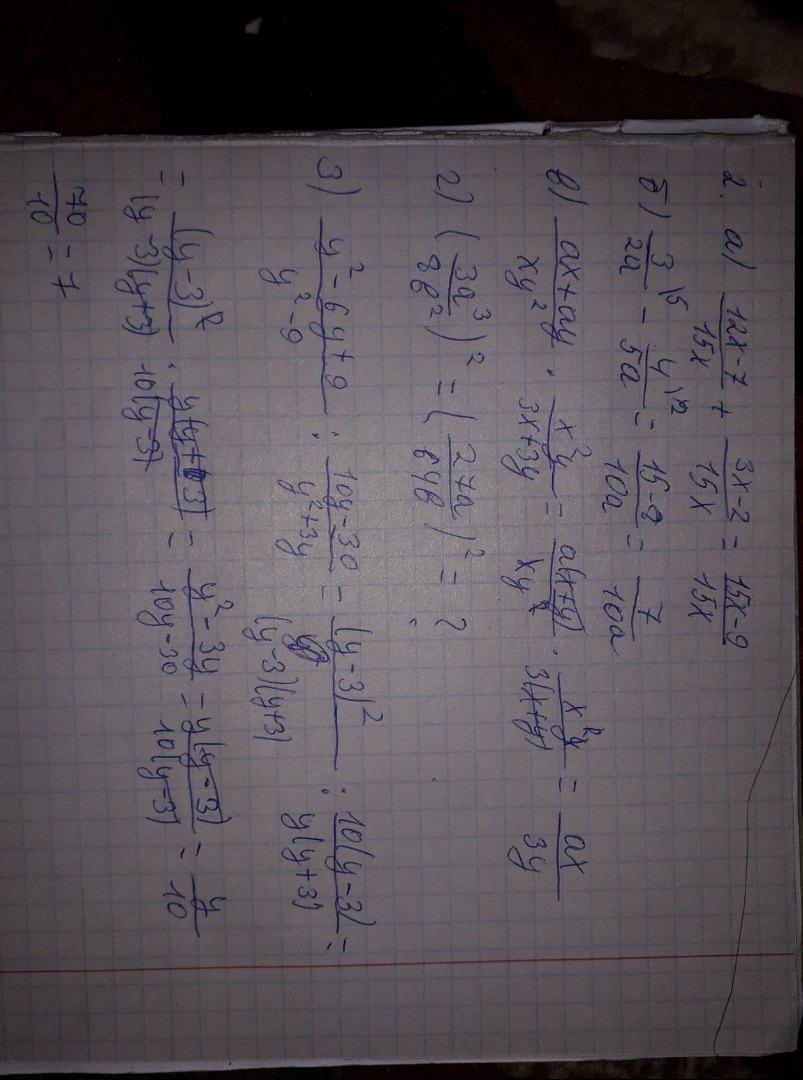 2. а) (12x-7)/(15x) + (3x-2)/(15x) = (15x-9)/(15x)
б) 3/(2a) \5 - 4/(5a) \2 = (15-8)/(10a) = 7/(10a)
в) (ax+ay)/(xy²) · (x²y)/(3x+3y) = (a(x+y))/(xy²) · (x²y)/(3(x+y)) = (ax)/(3y)
2) ((3a³)/(8b²))² = ((27a)/(64b))² = ?
3) (y²-6y+9)/(y²-9) : (10y-30)/(y²+3y) = (y-3)²/((y-3)(y+3)) : (10(y-3))/(y(y+3)) =
= (y-3)²/((y-3)(y+3)) · (y(y+3))/(10(y-3)) = (y²-3y)/(10y-30) = (y(y-3))/(10(y-3)) = y/10
70/10 = 7